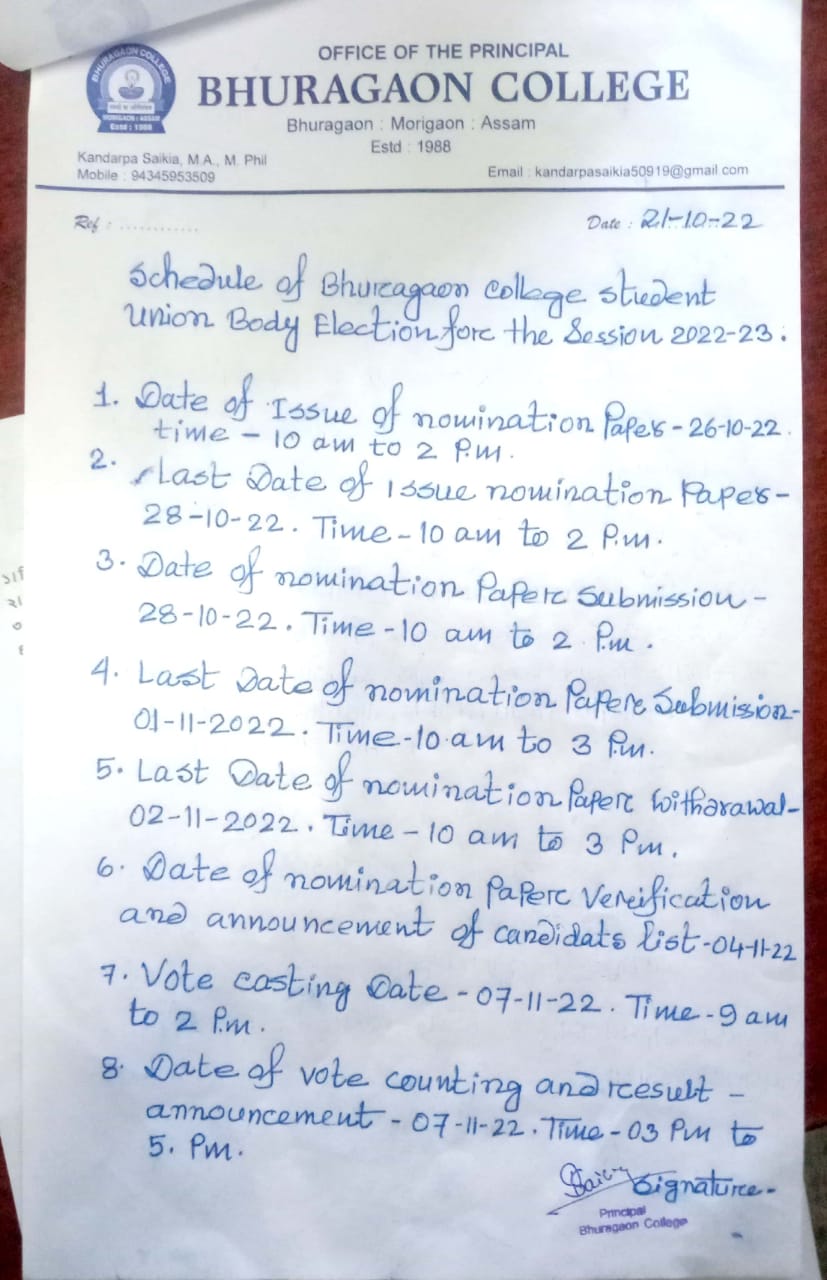 BHURAGAON COLLEGE
MORIGAON : ASSAM
Estd : 1988
OFFICE OF THE PRINCIPAL
BHURAGAON COLLEGE
Bhuragaon : Morigaon : Assam
Estd : 1988
Kandarpa Saikia, M.A., M. Phil
Mobile : 94345953509
Email : kandarpasaikia50919@gmail.com
Ref : ............
Date : 21-10-22
Schedule of Bhuragaon College Student
Union Body Election for the Session 2022-23.
1. Date of Issue of nomination Paper - 26-10-22.
time - 10 am to 2 P.m.
2. Last Date of Issue nomination Paper -
28-10-22. Time - 10 am to 2 P.m.
3. Date of nomination Paper Submission -
28-10-22. Time - 10 am to 2 P.m.
4. Last Date of nomination Paper Submission -
01-11-2022. Time - 10 am to 3 P.m.
5. Last Date of nomination Paper Witharawal -
02-11-2022. Time - 10 am to 3 Pm.
6. Date of nomination Paper Verification
and announcement of candidats list - 04-11-22
7. Vote casting Date - 07-11-22. Time - 9 am
to 2 P.m.
8. Date of vote counting and result -
announcement - 07-11-22. Time - 03 Pm to
5. Pm.
Signature -
Principal
Bhuragaon College